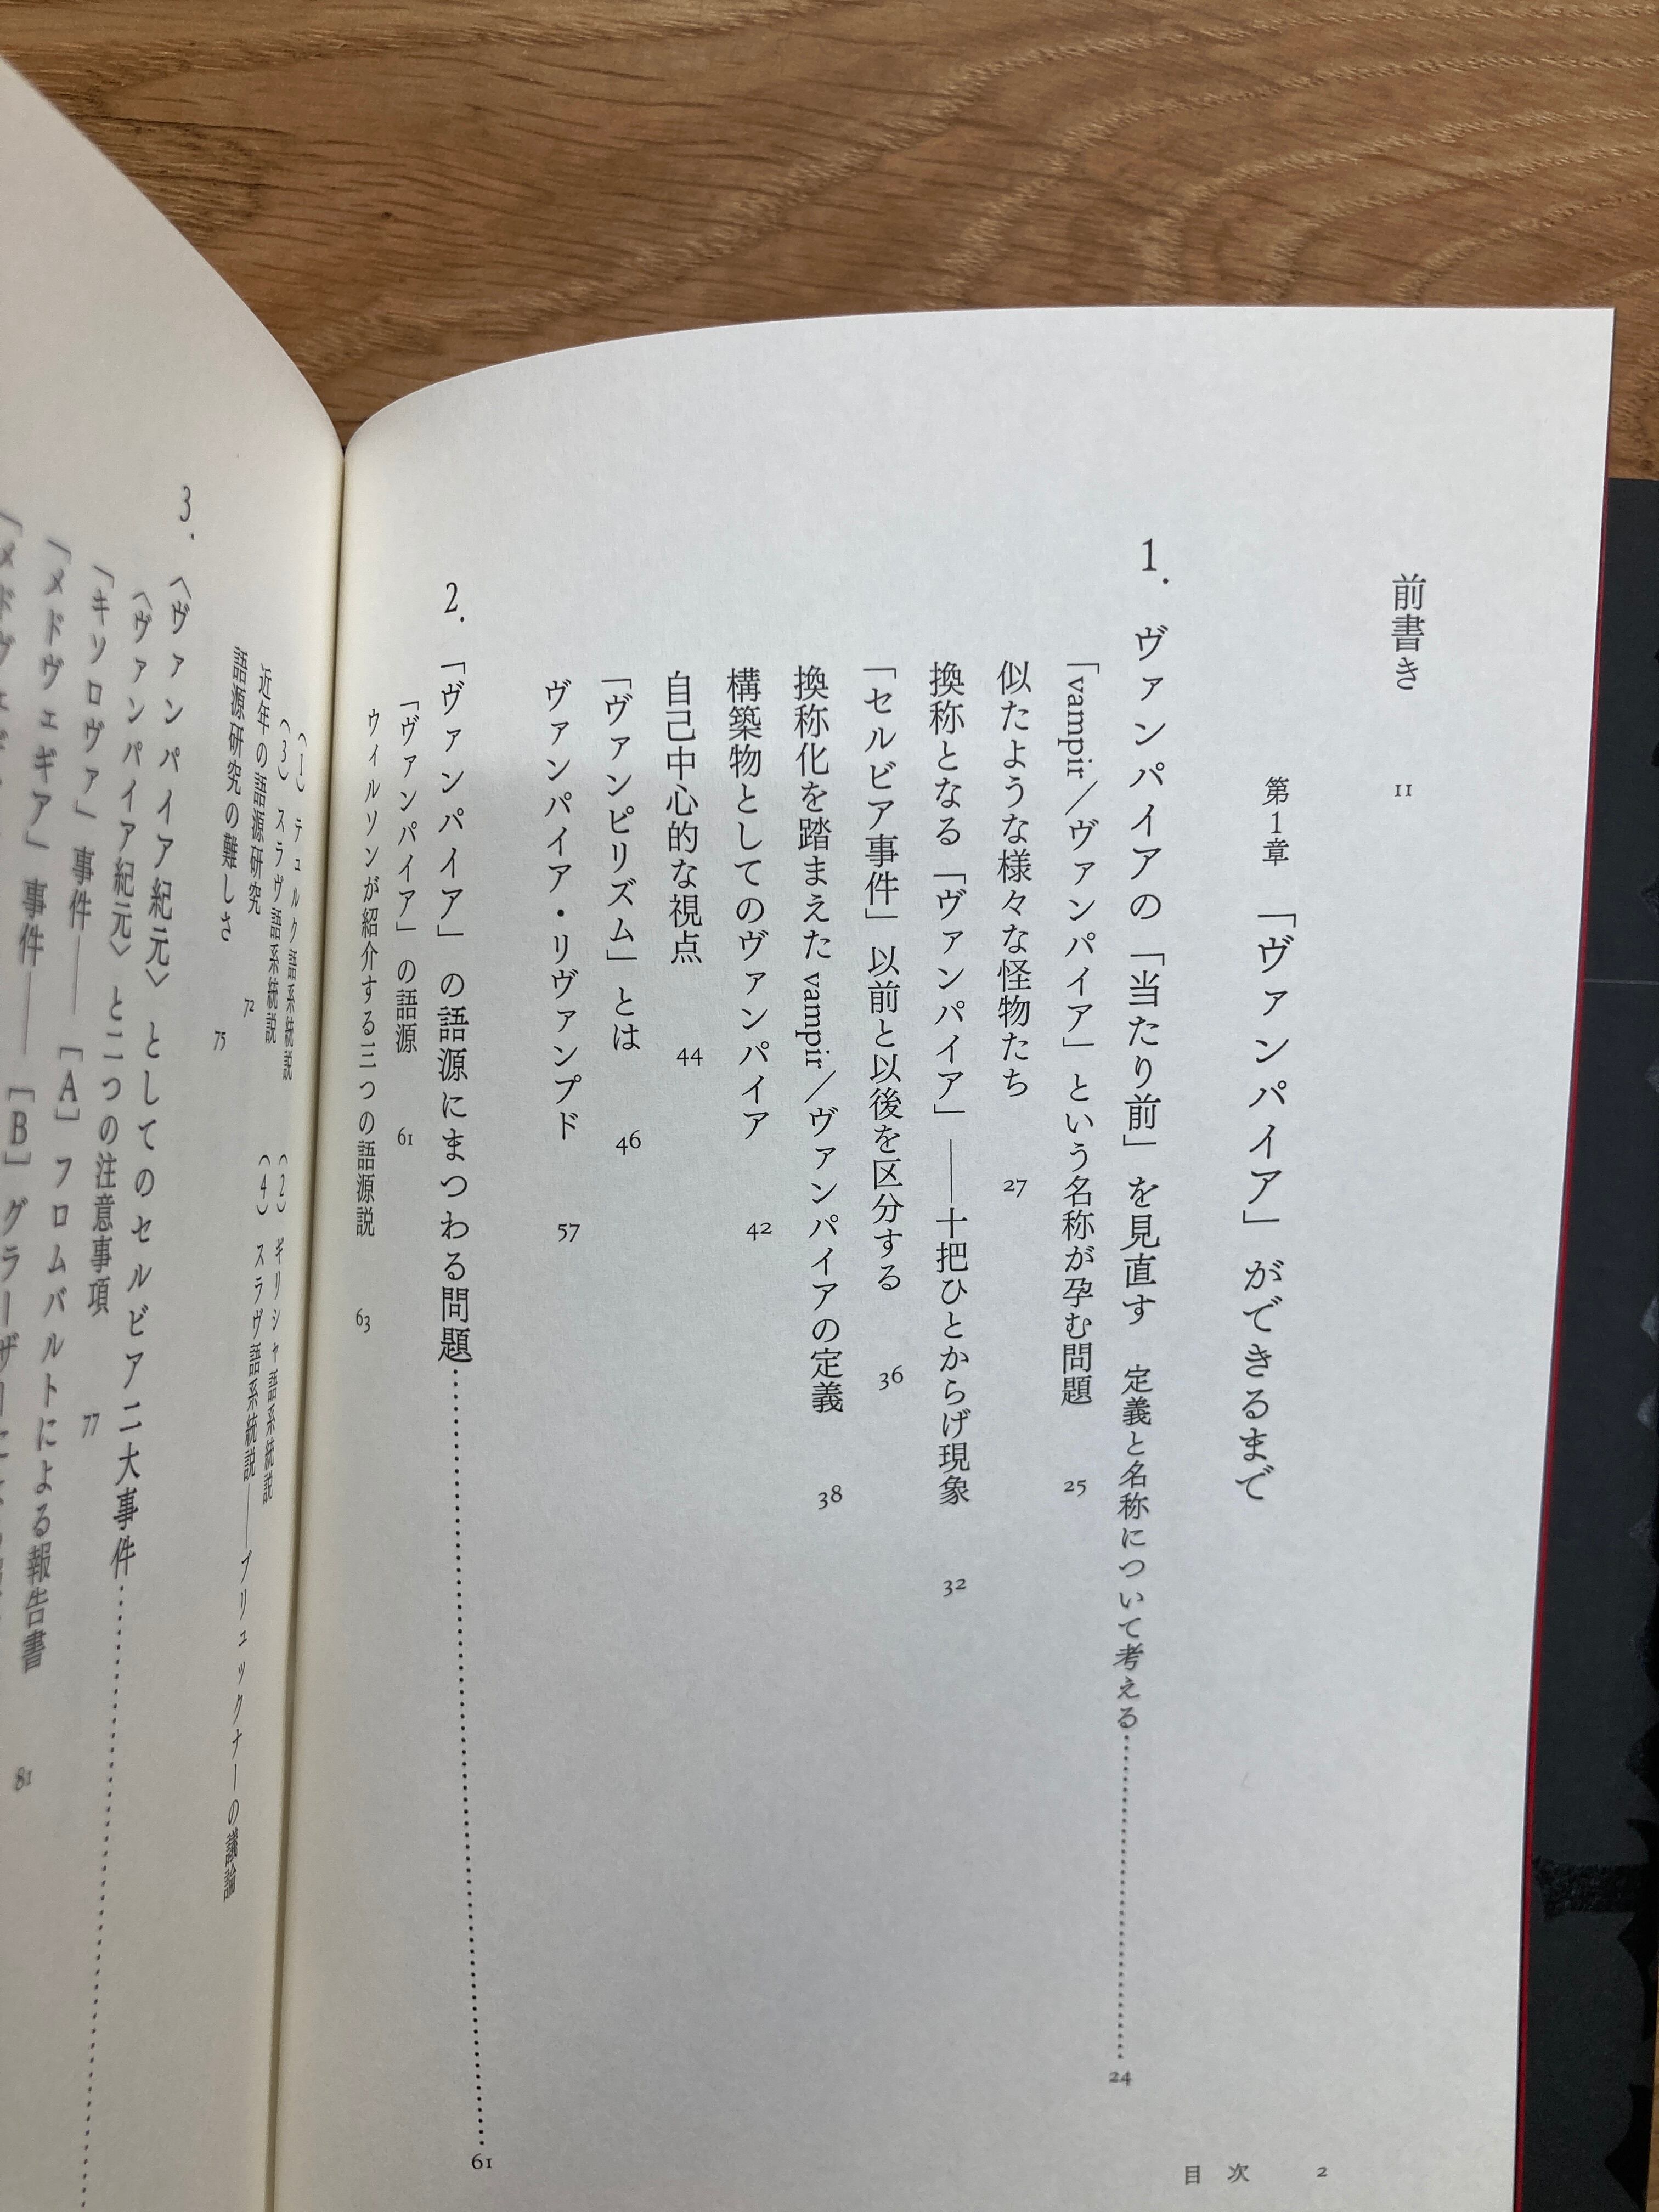 前書き 11
第1章 「ヴァンパイア」ができるまで
1. ヴァンパイアの「当たり前」を見直す 定義と名称について考える……24
「vampir／ヴァンパイア」という名称が孕む問題 25
似たような様々な怪物たち 27
換称となる「ヴァンパイア」――十把ひとからげ現象 32
「セルビア事件」以前と以後を区分する 36
換称化を踏まえた vampir／ヴァンパイアの定義 38
構築物としてのヴァンパイア 42
自己中心的な視点 44
「ヴァンピリズム」とは 46
ヴァンパイア・リヴァンプド 57
2. 「ヴァンパイア」の語源にまつわる問題……61
「ヴァンパイア」の語源 61
ウィルソンが紹介する三つの語源説 63
目次 2
(1) テュルク語系統説 (2) ギリシャ語系統説
(3) スラヴ語系統説 (4) スラヴ語系統説――ブリュックナーの議論
近年の語源研究 72
語源研究の難しさ 75
3. 〈ヴァンパイア紀元〉としてのセルビア二大事件……
〈ヴァンパイア紀元〉と二つの注意事項 77
「キソロヴァ」事件――［A］フロムバルトによる報告書 81
「メドヴェギア」事件――［B］グラーザーに
「メドヴェギ